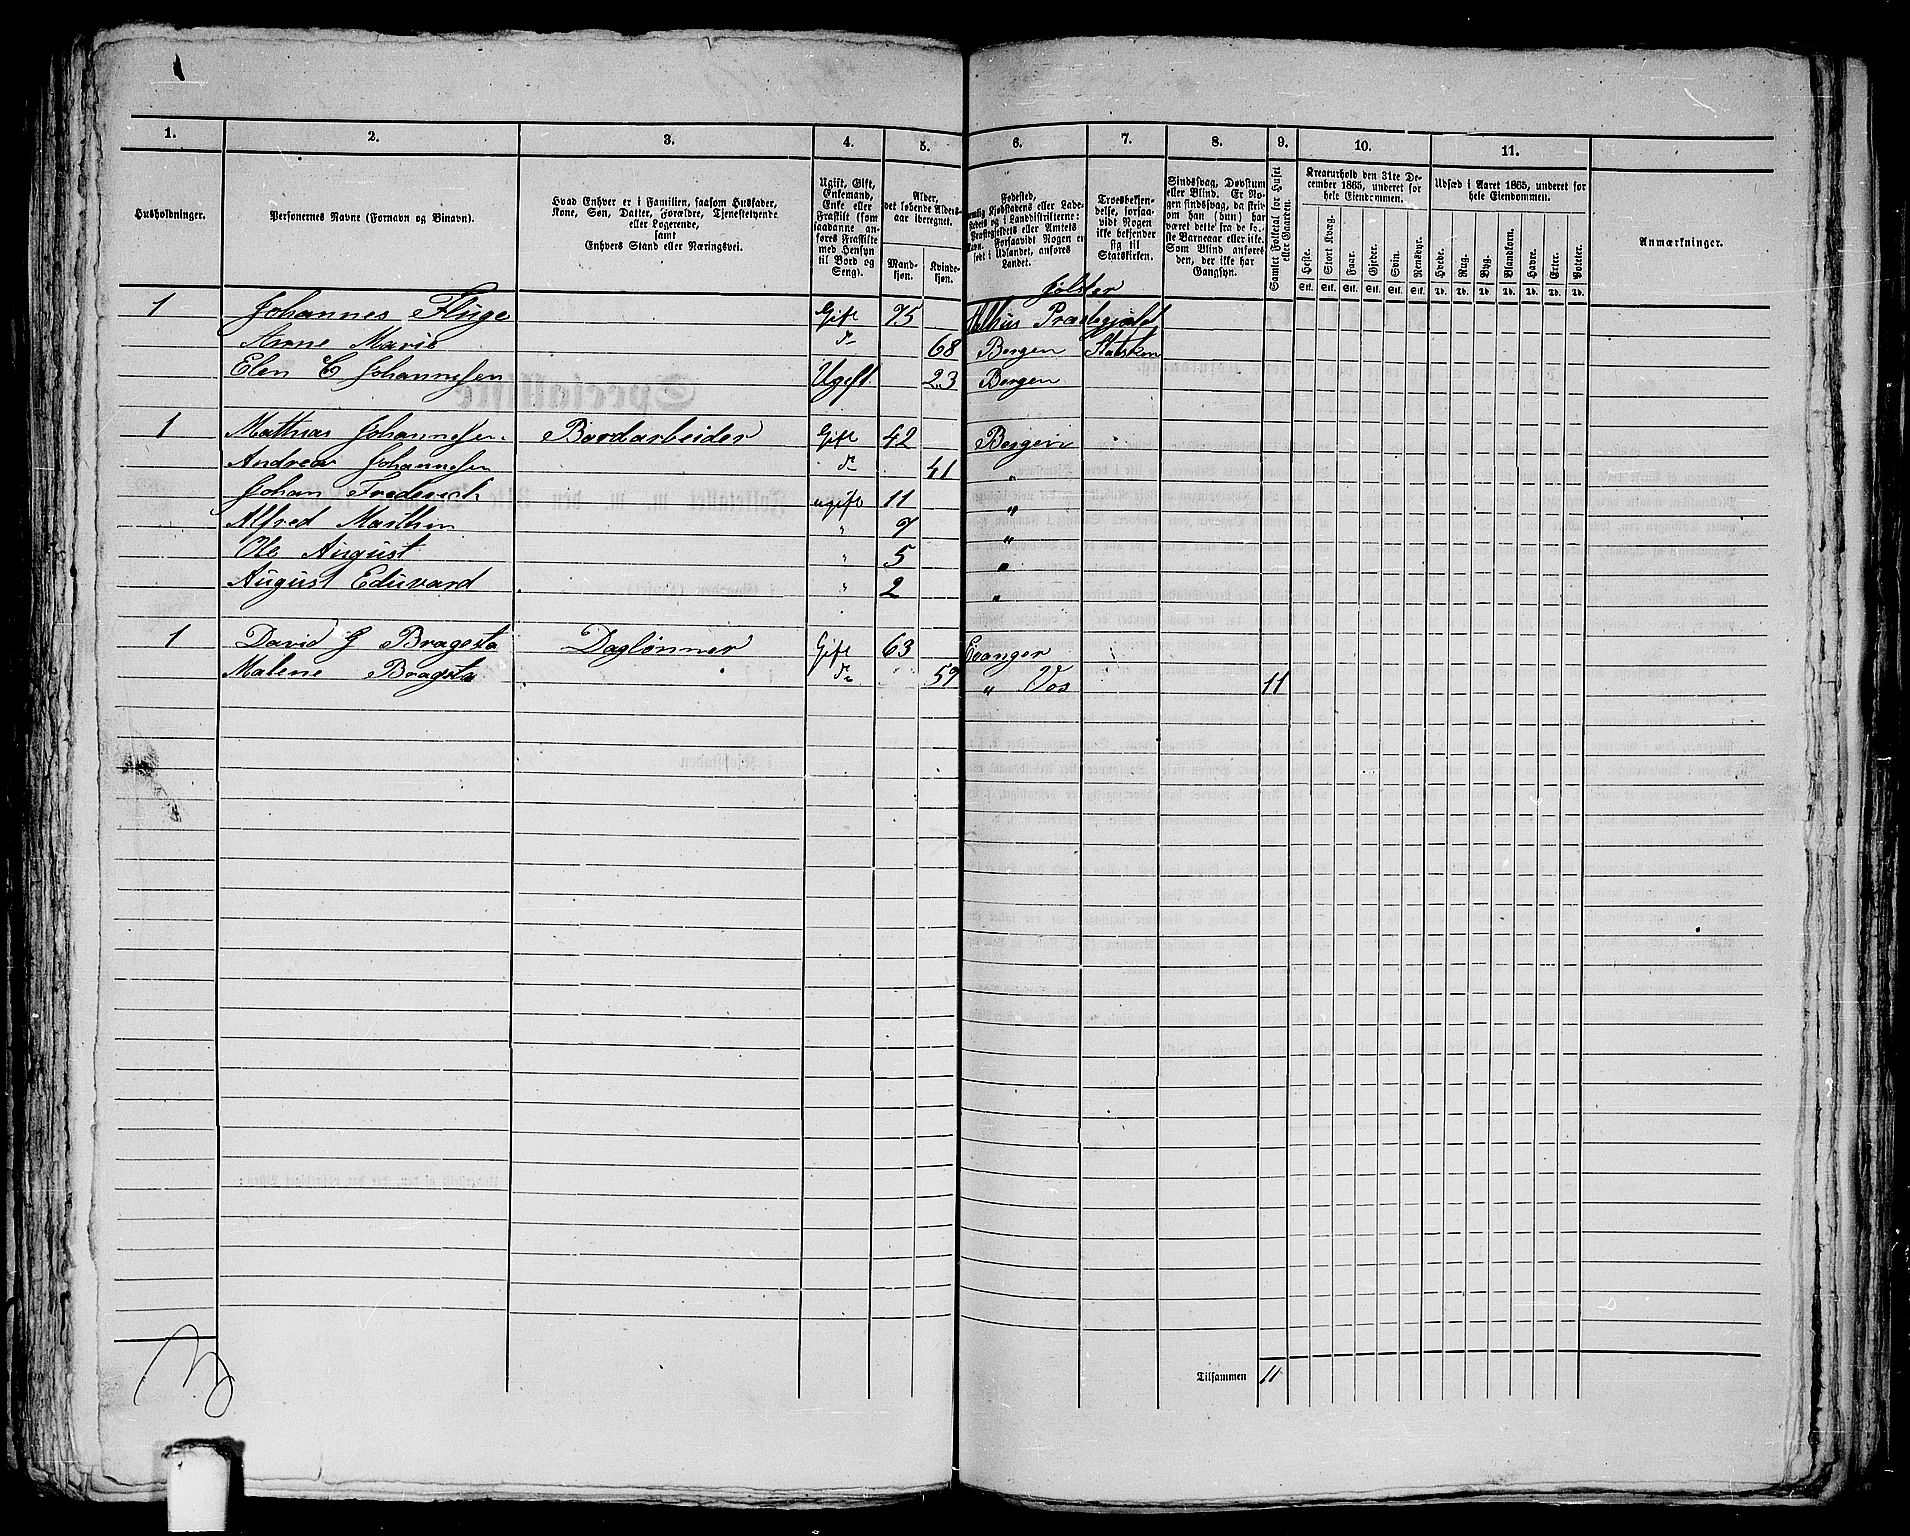 1. 2. 3. 4. 5. 6. 7. 8. 9. 10. 11.
Husholdninger.
Personernes Navne (Fornavn og Binavn).
Hvad Enhver er i Familien, saasom Husfader,
Kone, Søn, Datter, Forældre, Tjenestetyende
eller Logerende,
samt
Enhvers Stand eller Næringsvei.
Ugift, Gift,
Enkemand,
Enke eller
Fraskilt (som
saadanne an-
føres Fraskilte
med Hensyn
til Bord og
Seng).
Alder,
det løbende Alders-
aar iberegnet.
Mand-
kjøn.
Kvinde-
kjøn.
Fødested,
Landet.
Troesbekjen-
delse, forsaa-
vidt Nogen
ikke bekjender
sig til
Statskirken.
Sindssvag, Døvstum
eller Blind. Er No-
gen sindssvag, da skriv
om han (hun) har
været det fra de før-
ste Barneaar eller ikke.
Som Blind anføres
den, der ikke har
Gangsyn.
Samlet Folketal for Huset
eller Gaarden.
Kreaturhold den 31te De-
cember 1865, underet for
hele Eiendommen.
Heste. Stort Kvæg. Faar. Gjeder. Svin. Rensdyr.
Stk. Stk. Stk. Stk. Stk. Stk.
Udsæd i Aaret 1865, underet for
hele Eiendommen.
Hvede. Rug. Byg. Blandkorn. Havre. Erter. Poteter.
Td. Td. Td. Td. Td. Td. Td.
Anmærkninger.
Jølster
1 Johannes Fluge Gift 75
Anne Marie do 68 Bergen
Elen C Johannesen Ugift 23 Bergen
1 Mathias Johannesen Bordarbeider Gift 42 Bergen
Andrea Johannesen do 41 "
Johan Frederich ugift 11 "
Alfred Marthin " 7 "
Ole August " 5 "
August Eduvard " 2 "
1 David J Bragesta Daglønner Gift 63 Evanger
Malene Bragsta do 59 " Vos 11
Tilsammen 11